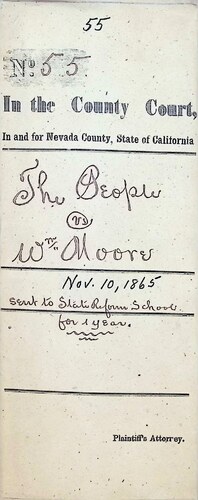 55
No. 55.
In the County Court,
In and for Nevada County, State of California
The People
vs
Wm Moore
Nov. 10, 1865
sent to State Reform School
for 1 year.
Plaintiff's Attorney.